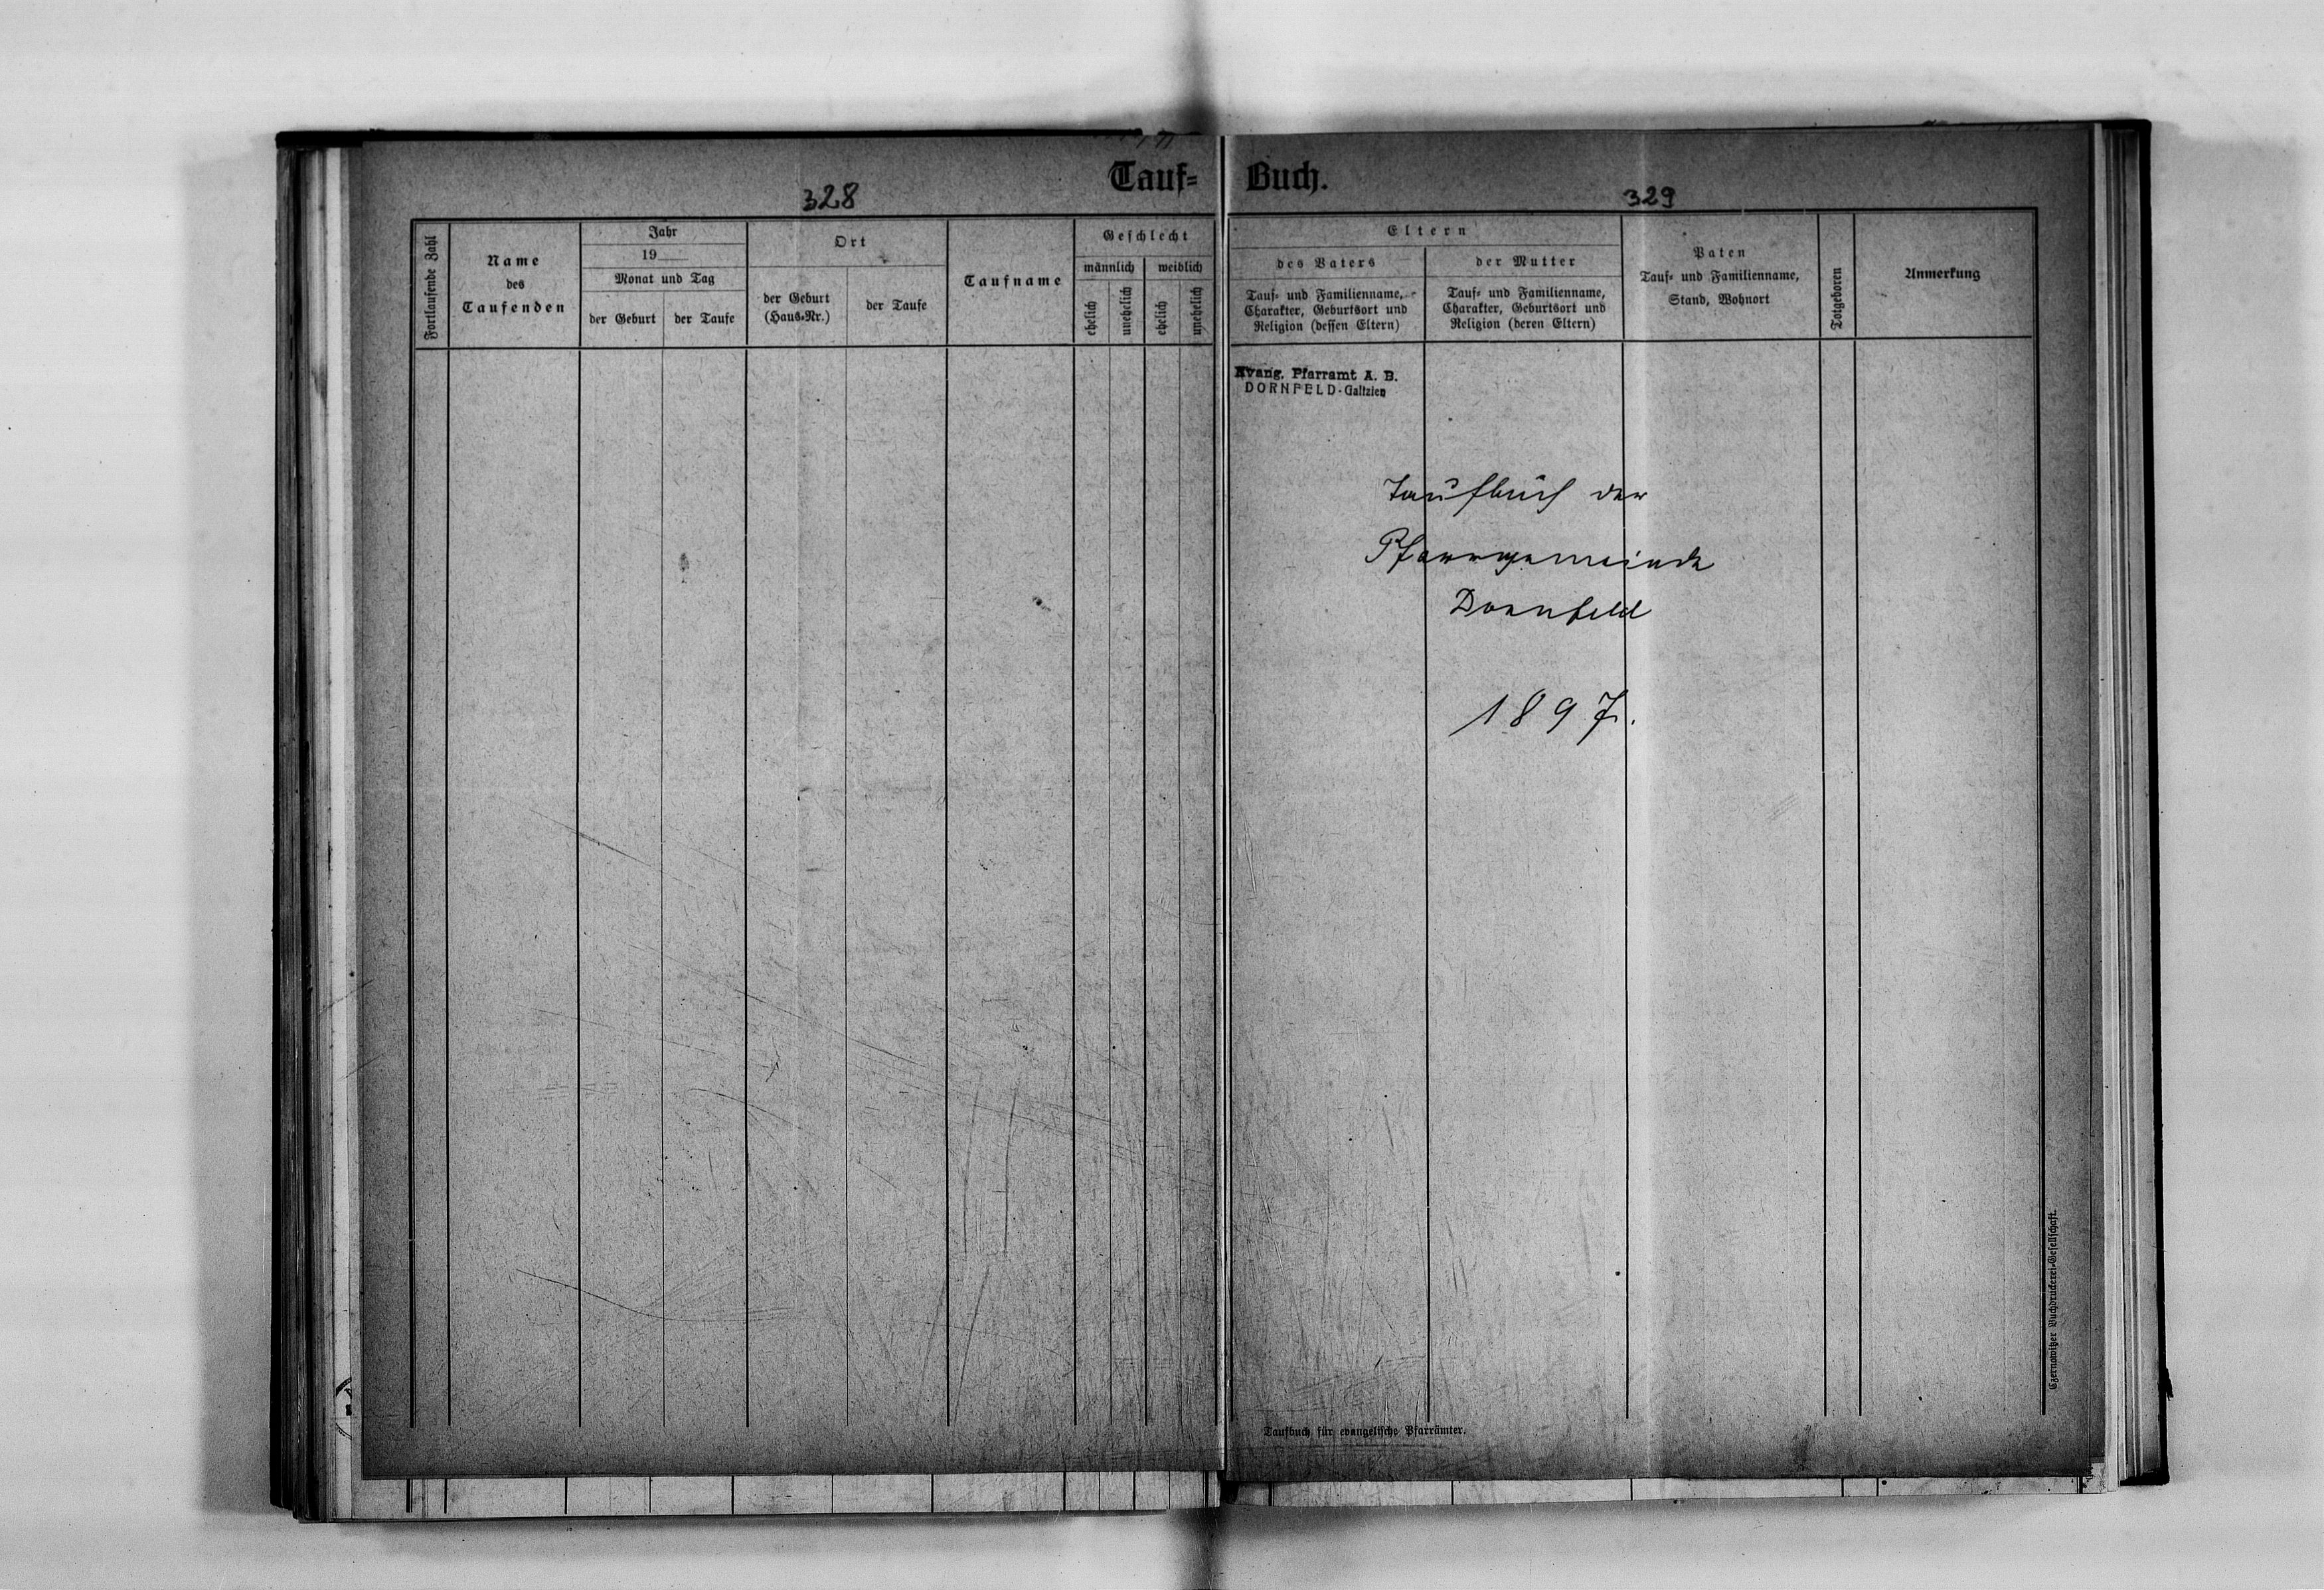 Tauf-
328
Fortlaufende Zahl
Name
des
Taufenden
Jahr
19
Monat und Tag
der Geburt
der Taufe
Ort
der Geburt
(Haus-Nr.)
der Taufe
Taufname
Geschlecht
männlich
weiblich
ehelich
unehelich
ehelich
unehelich
Buch.
329
Eltern
des Vaters
Tauf- und Familienname,
Charakter, Geburtsort und
Religion (dessen Eltern)
der Mutter
Tauf- und Familienname,
Charakter, Geburtsort und
Religion (deren Eltern)
Paten
Tauf- und Familienname,
Stand, Wohnort
Totgeboren
Anmerkung
Evang. Pfarramt A. B.
DORNFELD-Galizien
Taufbuch der
Pfarrgemeinde
Dornfeld
1897.
Czernowitzer Buchdruckerei-Gesellschaft.
Taufbuch für evangelische Pfarrämter.